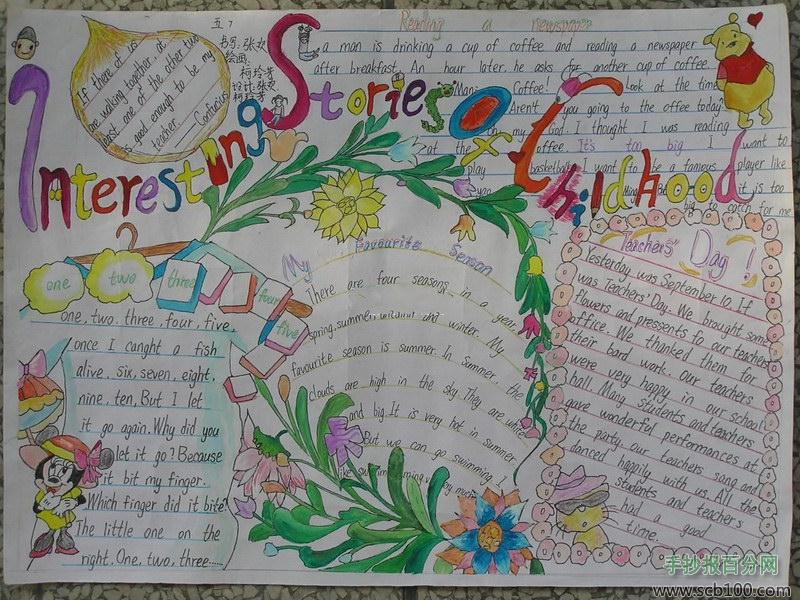 五7
书写:张
绘画:
柯玲芳
设计:张
柯玲芳
If there of us
are walking together, at
least one of the other two
is good enough to be my
teacher. —Confucius
Interesting Stories of Childhood
Reading a newspaper
a man is drinking a cup of coffee and reading a newspaper
after breakfast. An hour later, he asks for another cup of coffee.
Man: Coffee! Look at the time
Aren't you going to the offee today?
my God. I thought I was reading
at the offee. It's too big I want to
play basketball. I want to be a famous player like
it is too
big to catch for me
one two three four five
one, two, three, four, five,
once I canght a fish
alive. six, seven, eight,
nine, ten, But I let
it go again. Why did you
let it go? Because
it bit my finger.
Which finger did it bite?
The little one on the
right. One, two, three......
My Favourite Season
There are four seasons in a year,
spring, summer, and winter. My
favourite season is summer. In summer, the
clouds are high in the sky. They are white
and big. It is very hot in summer
But we can go swimming. I
like swimming very much
Teachers' Day!
Yesterday was September 10. If
was Teachers' Day. We brought some
flowers and pressents to our teachers
office. We thanked them for
their bard work. our teachers
were very happy in our school
hall. Many students and teachers
gave wonderful performances at
the party. our teachers sang and
danced happily with us. All the
students and teachers
had a good
time.
手抄报百分网
www.scb100.com